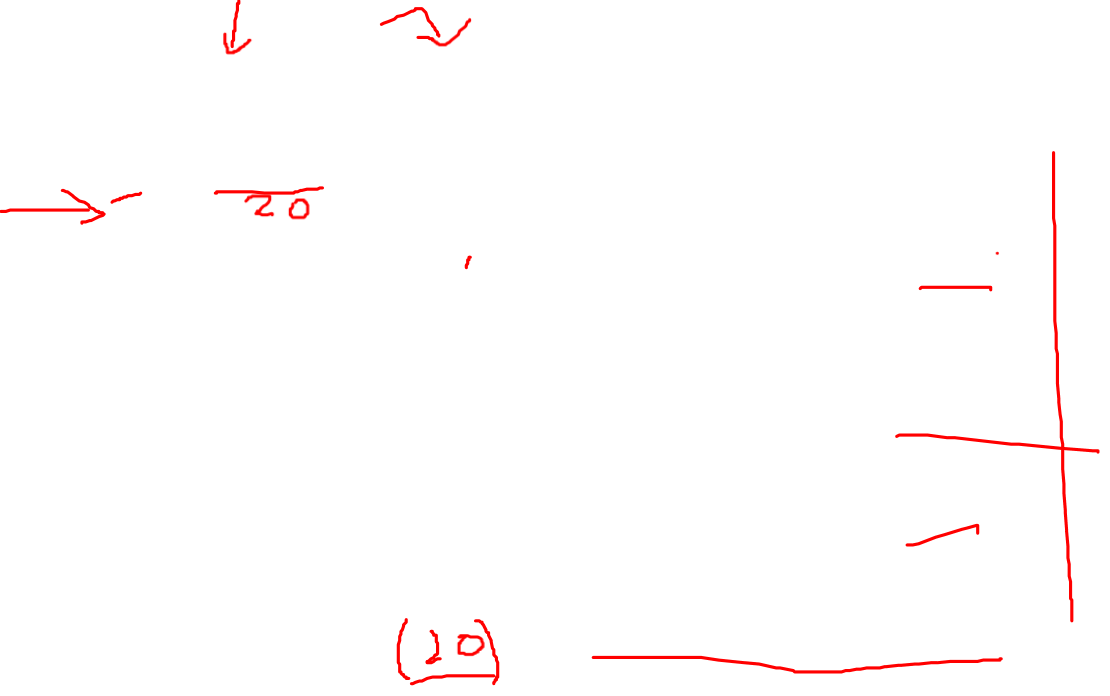 20
(20)